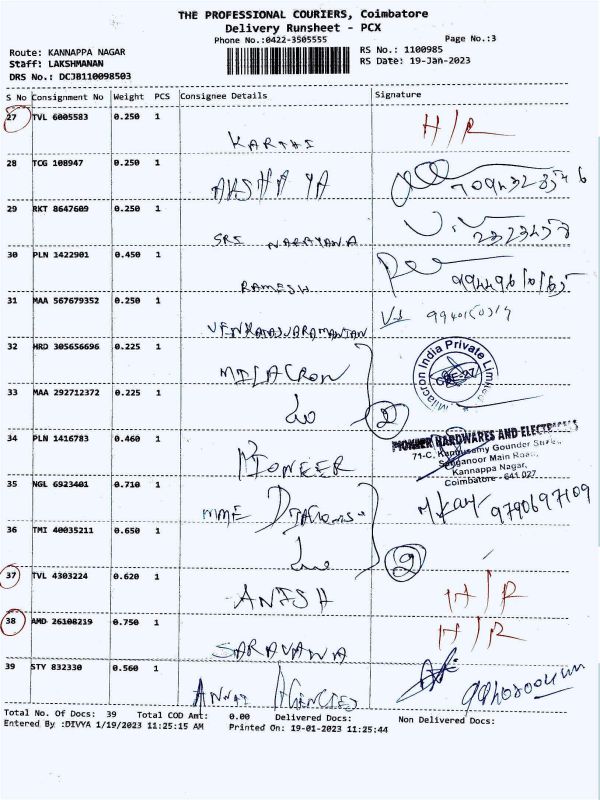 THE PROFESSIONAL COURIERS, Coimbatore
Delivery Runsheet - PCX
Phone No.:0422-3505555 Page No.:3
Route: KANNAPPA NAGAR RS No.: 1100985
Staff: LAKSHMANAN RS Date: 19-Jan-2023
DRS No.: DCJB110098503
S No Consignment No Weight PCS Consignee Details Signature
27 TVL 6005583 0.250 1
KARTHI H/R
28 TCG 108947 0.250 1
AKSHAYA
29 RKT 8647609 0.250 1
SRI NARAYANA
30 PLN 1422901 0.450 1
RAMESH
31 MAA 567679352 0.250 1
32 HRD 305656696 0.225 1
MILACRON
Milacron India Private Limited
33 MAA 292712372 0.225 1
2
34 PLN 1416783 0.460 1
PIONEER
PIONEER HARDWARES AND ELECTRICALS
71-C, Kannusamy Gounder Street,
Sanganoor Main Road,
Kannappa Nagar,
Coimbatore - 641 027
35 NGL 6923401 0.710 1
MME
9790697109
36 TMI 40035211 0.650 1
2
37 TVL 4303224 0.620 1
ANISH H/R
38 AMD 26108219 0.750 1
SARAVANA H/R
39 STY 832330 0.560 1
ANNAI AGENCIES
Total No. Of Docs: 39 Total COD Amt: 0.00 Delivered Docs: Non Delivered Docs:
Entered By :DIVYA 1/19/2023 11:25:15 AM Printed On: 19-01-2023 11:25:44